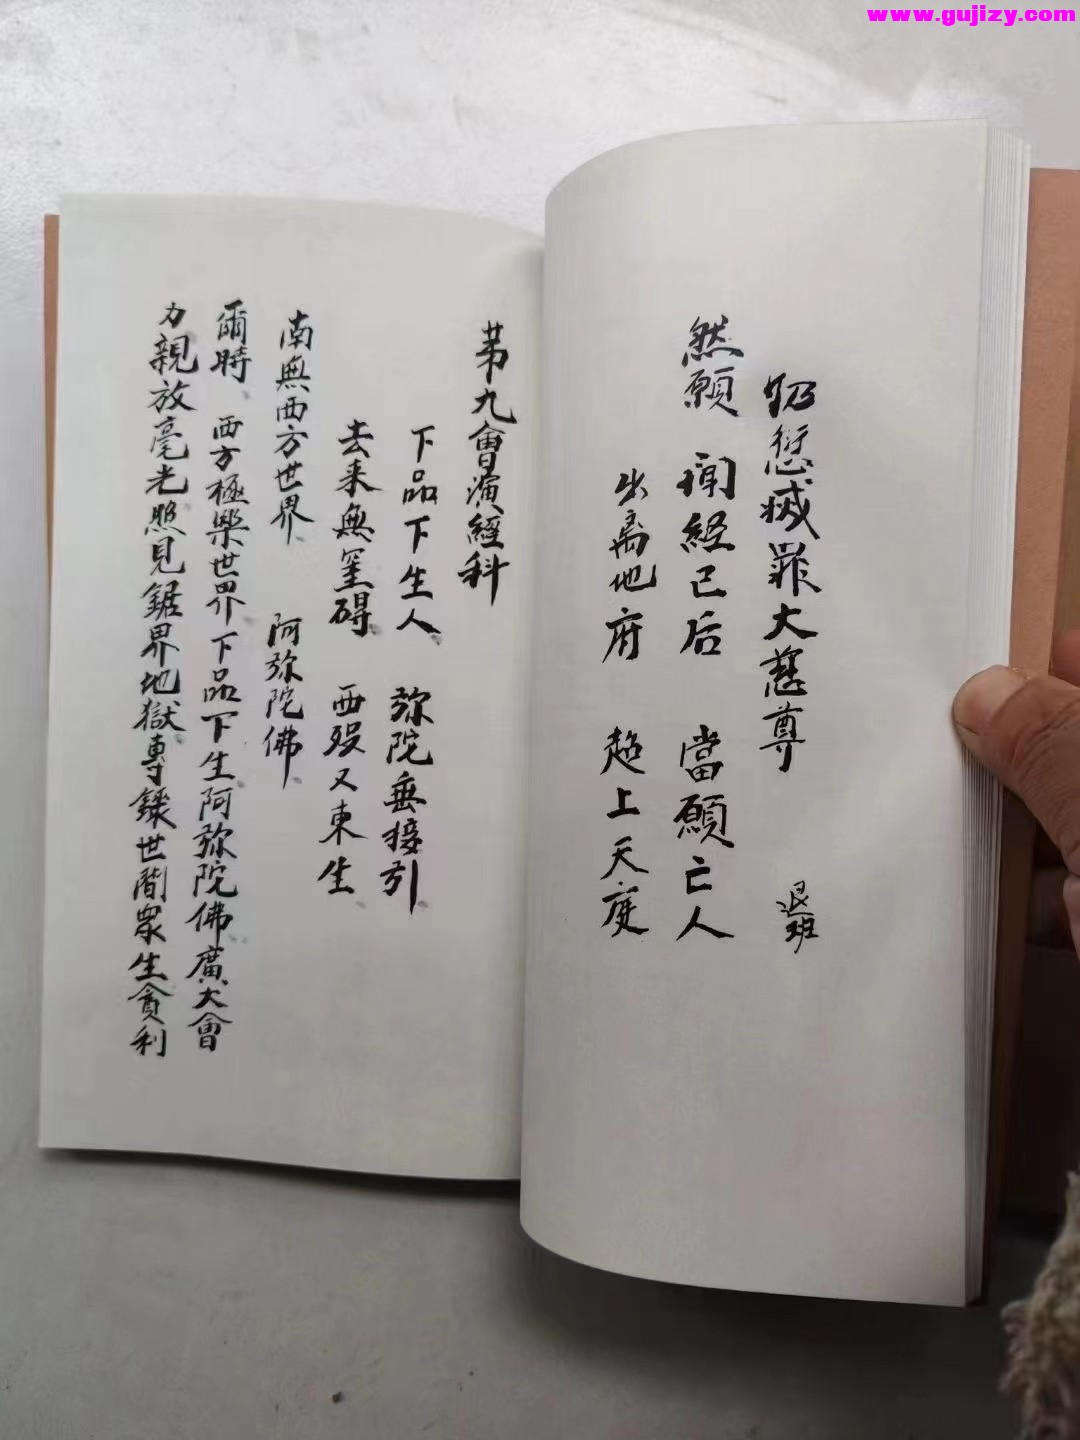 www.gujizy.com
愆滅罪大慈尊 退班
然願 闻经已后 當願亡人
出离地府 超上天庭
苐九會演經科
下品下生人 弥陀垂接引
去来無罣碍 西殁又東生
南無西方世界 阿弥陀佛
爾時、西方極樂世界下品下生阿弥陀佛廣大會
力親放毫光照見鋸界地獄專世間衆生貪利